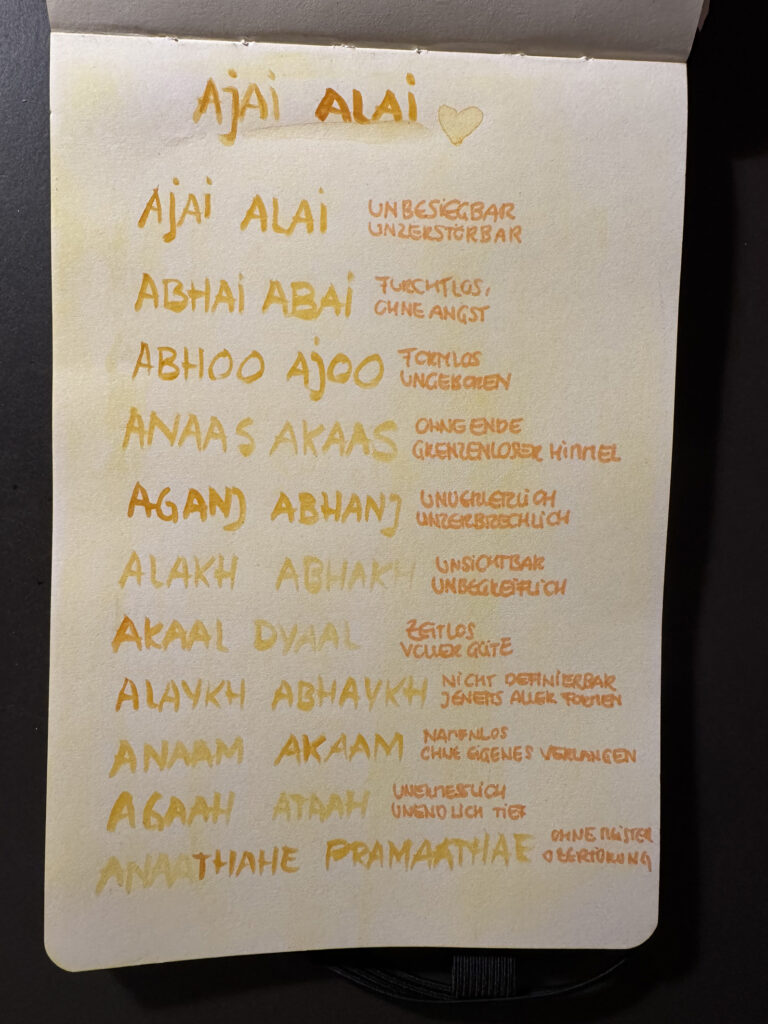 Ajai ALAi
Ajai ALAi UNBESiEGBAR
UNZERSTÖRBAR
ABHAi ABAi FURCHTLOS,
OHNE ANGST
ABHOO AjOO FORMLOS
UNGEBOREN
ANAAS AKAAS OHNE ENDE
GRENZENLOSER HiMMEL
AGANJ ABHANJ UNVERLETZLiCH
UNZERBRECHLiCH
ALAKH ABHAKH UNSiCHTBAR
UNBEGREiFLiCH
AKAAL DYAAL ZEiTLOS
VOLLER GÜTE
ALAYKH ABHAYKH NiCHT DEFiNiERBAR
JENSEiTS ALLER FORMEN
ANAAM AKAAM NAMENLOS
OHNE EiGENES VERLANGEN
AGAAH ATAAH UNERMESSLiCH
UNENDLiCH TiEF
ANAATHAHE PRAMAATHAE OHNE MEiSTER